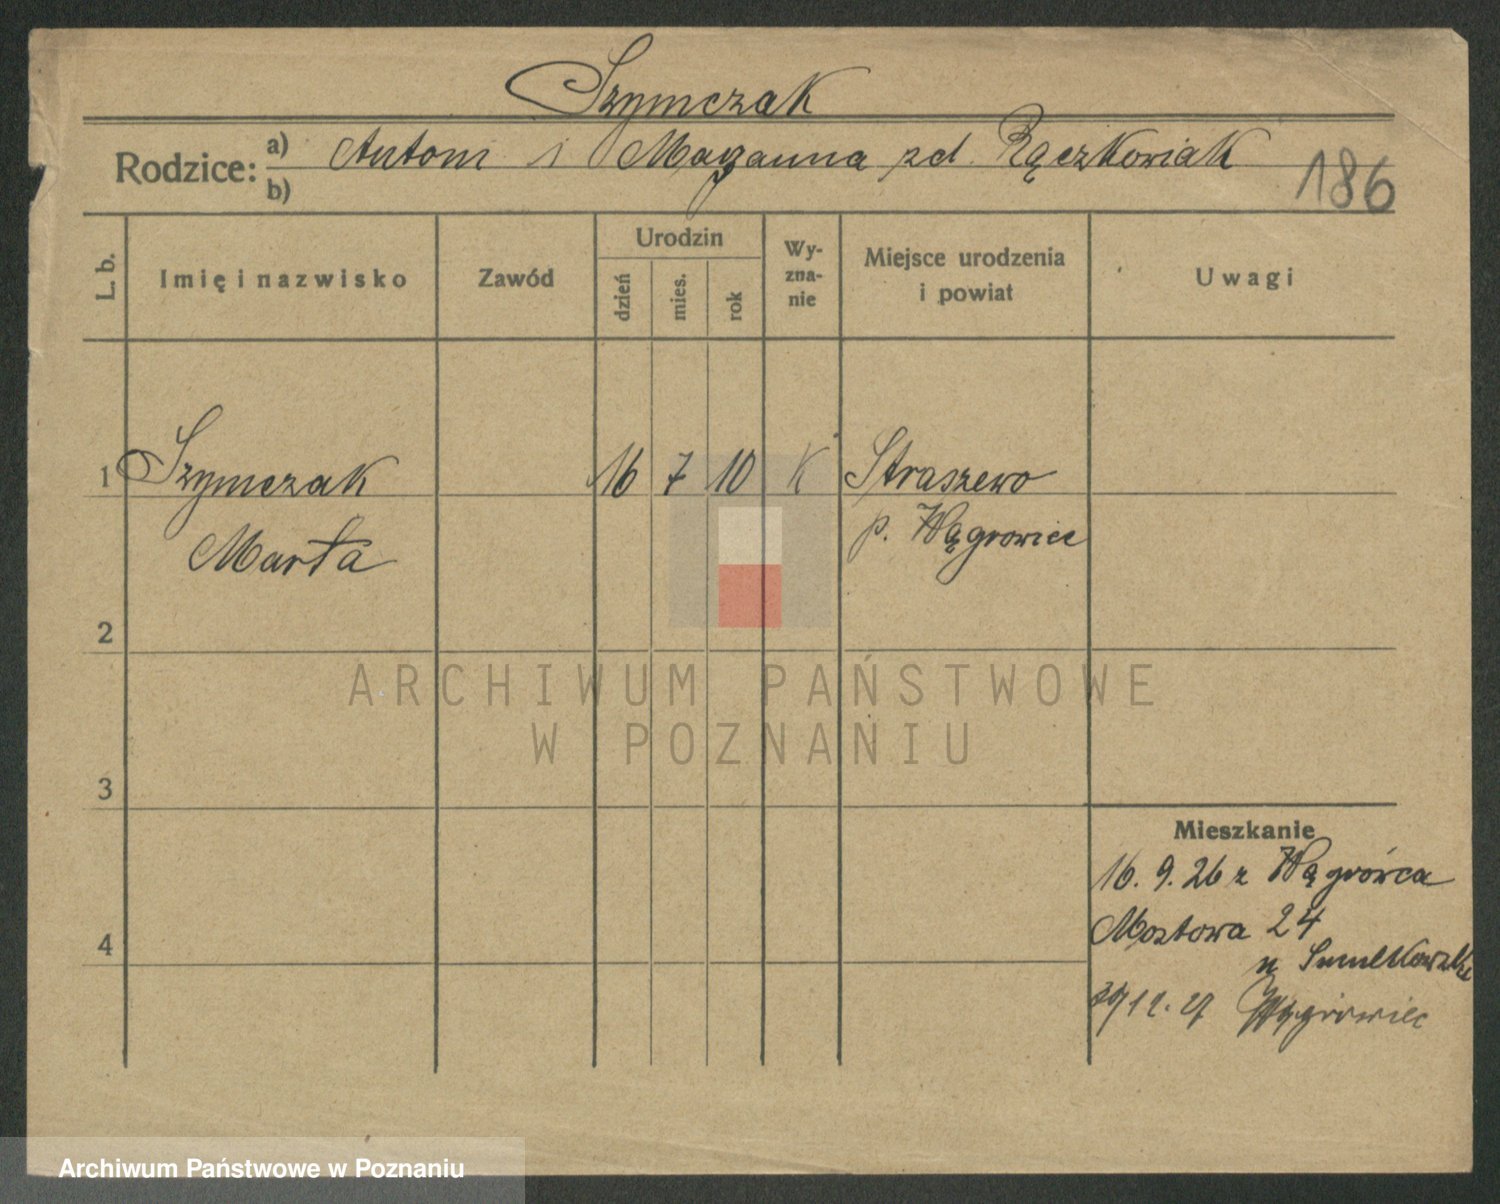 Szymczak
Rodzice: a) Antoni i Maryanna zd. Rączkowiak
b)
186
L. b.
Imię i nazwisko
Zawód
Urodzin
dzień
mies.
rok
Wy-
zna-
nie
Miejsce urodzenia
i powiat
Uwagi
1 Szymczak 16 7 10 K Straszewo
Marta p. Wągrowiec
2
3
4
ARCHIWUM PAŃSTWOWE
W POZNANIU
Mieszkanie
16. 9. 26 z Wągrówca
Mostowa 24
u
12. 27 Wągrowiec
Archiwum Państwowe w Poznaniu